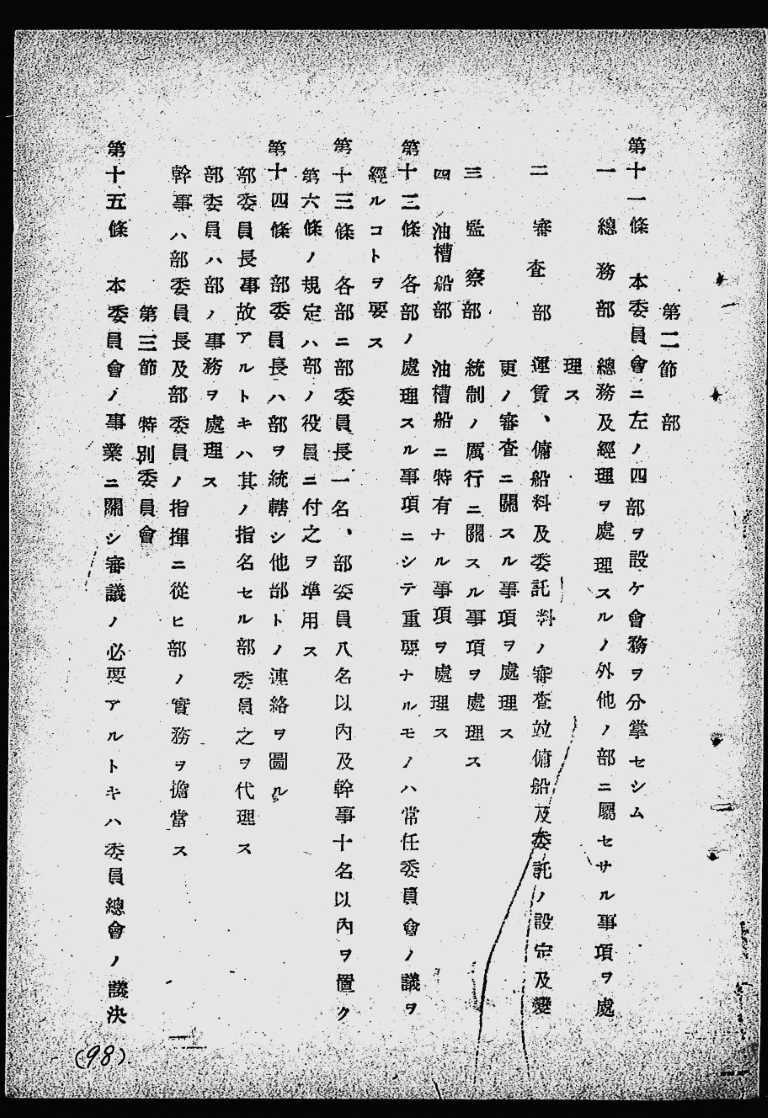 第二節 部
第十一條 本委員會ニ左ノ四部ヲ設ケ會務ヲ分掌セシム
一 總務部 總務及經理ヲ處理スルノ外他ノ部ニ屬セサル事項ヲ處
理ス
二 審査部 運賃、傭船料及委託料ノ審査竝傭船及委託ノ設定及變
更ノ審査ニ關スル事項ヲ處理ス
三 監察部 統制ノ厲行ニ關スル事項ヲ處理ス
四 油槽船部 油槽船ニ特有ナル事項ヲ處理ス
第十二條 各部ノ處理スル事項ニシテ重要ナルモノハ常任委員會ノ議ヲ
經ルコトヲ要ス
第十三條 各部ニ部委員長一名、部委員八名以內及幹事十名以內ヲ置ク
第六條ノ規定ハ部ノ役員ニ付之ヲ準用ス
第十四條 部委員長ハ部ヲ統轄シ他部トノ連絡ヲ圖ル
部委員長事故アルトキハ其ノ指名セル部委員之ヲ代理ス
部委員ハ部ノ事務ヲ處理ス
幹事ハ部委員長及部委員ノ指揮ニ從ヒ部ノ實務ヲ擔當ス
第三節 特別委員會
第十五條 本委員會ノ事業ニ關シ審議ノ必要アルトキハ委員總會ノ議決
(98)